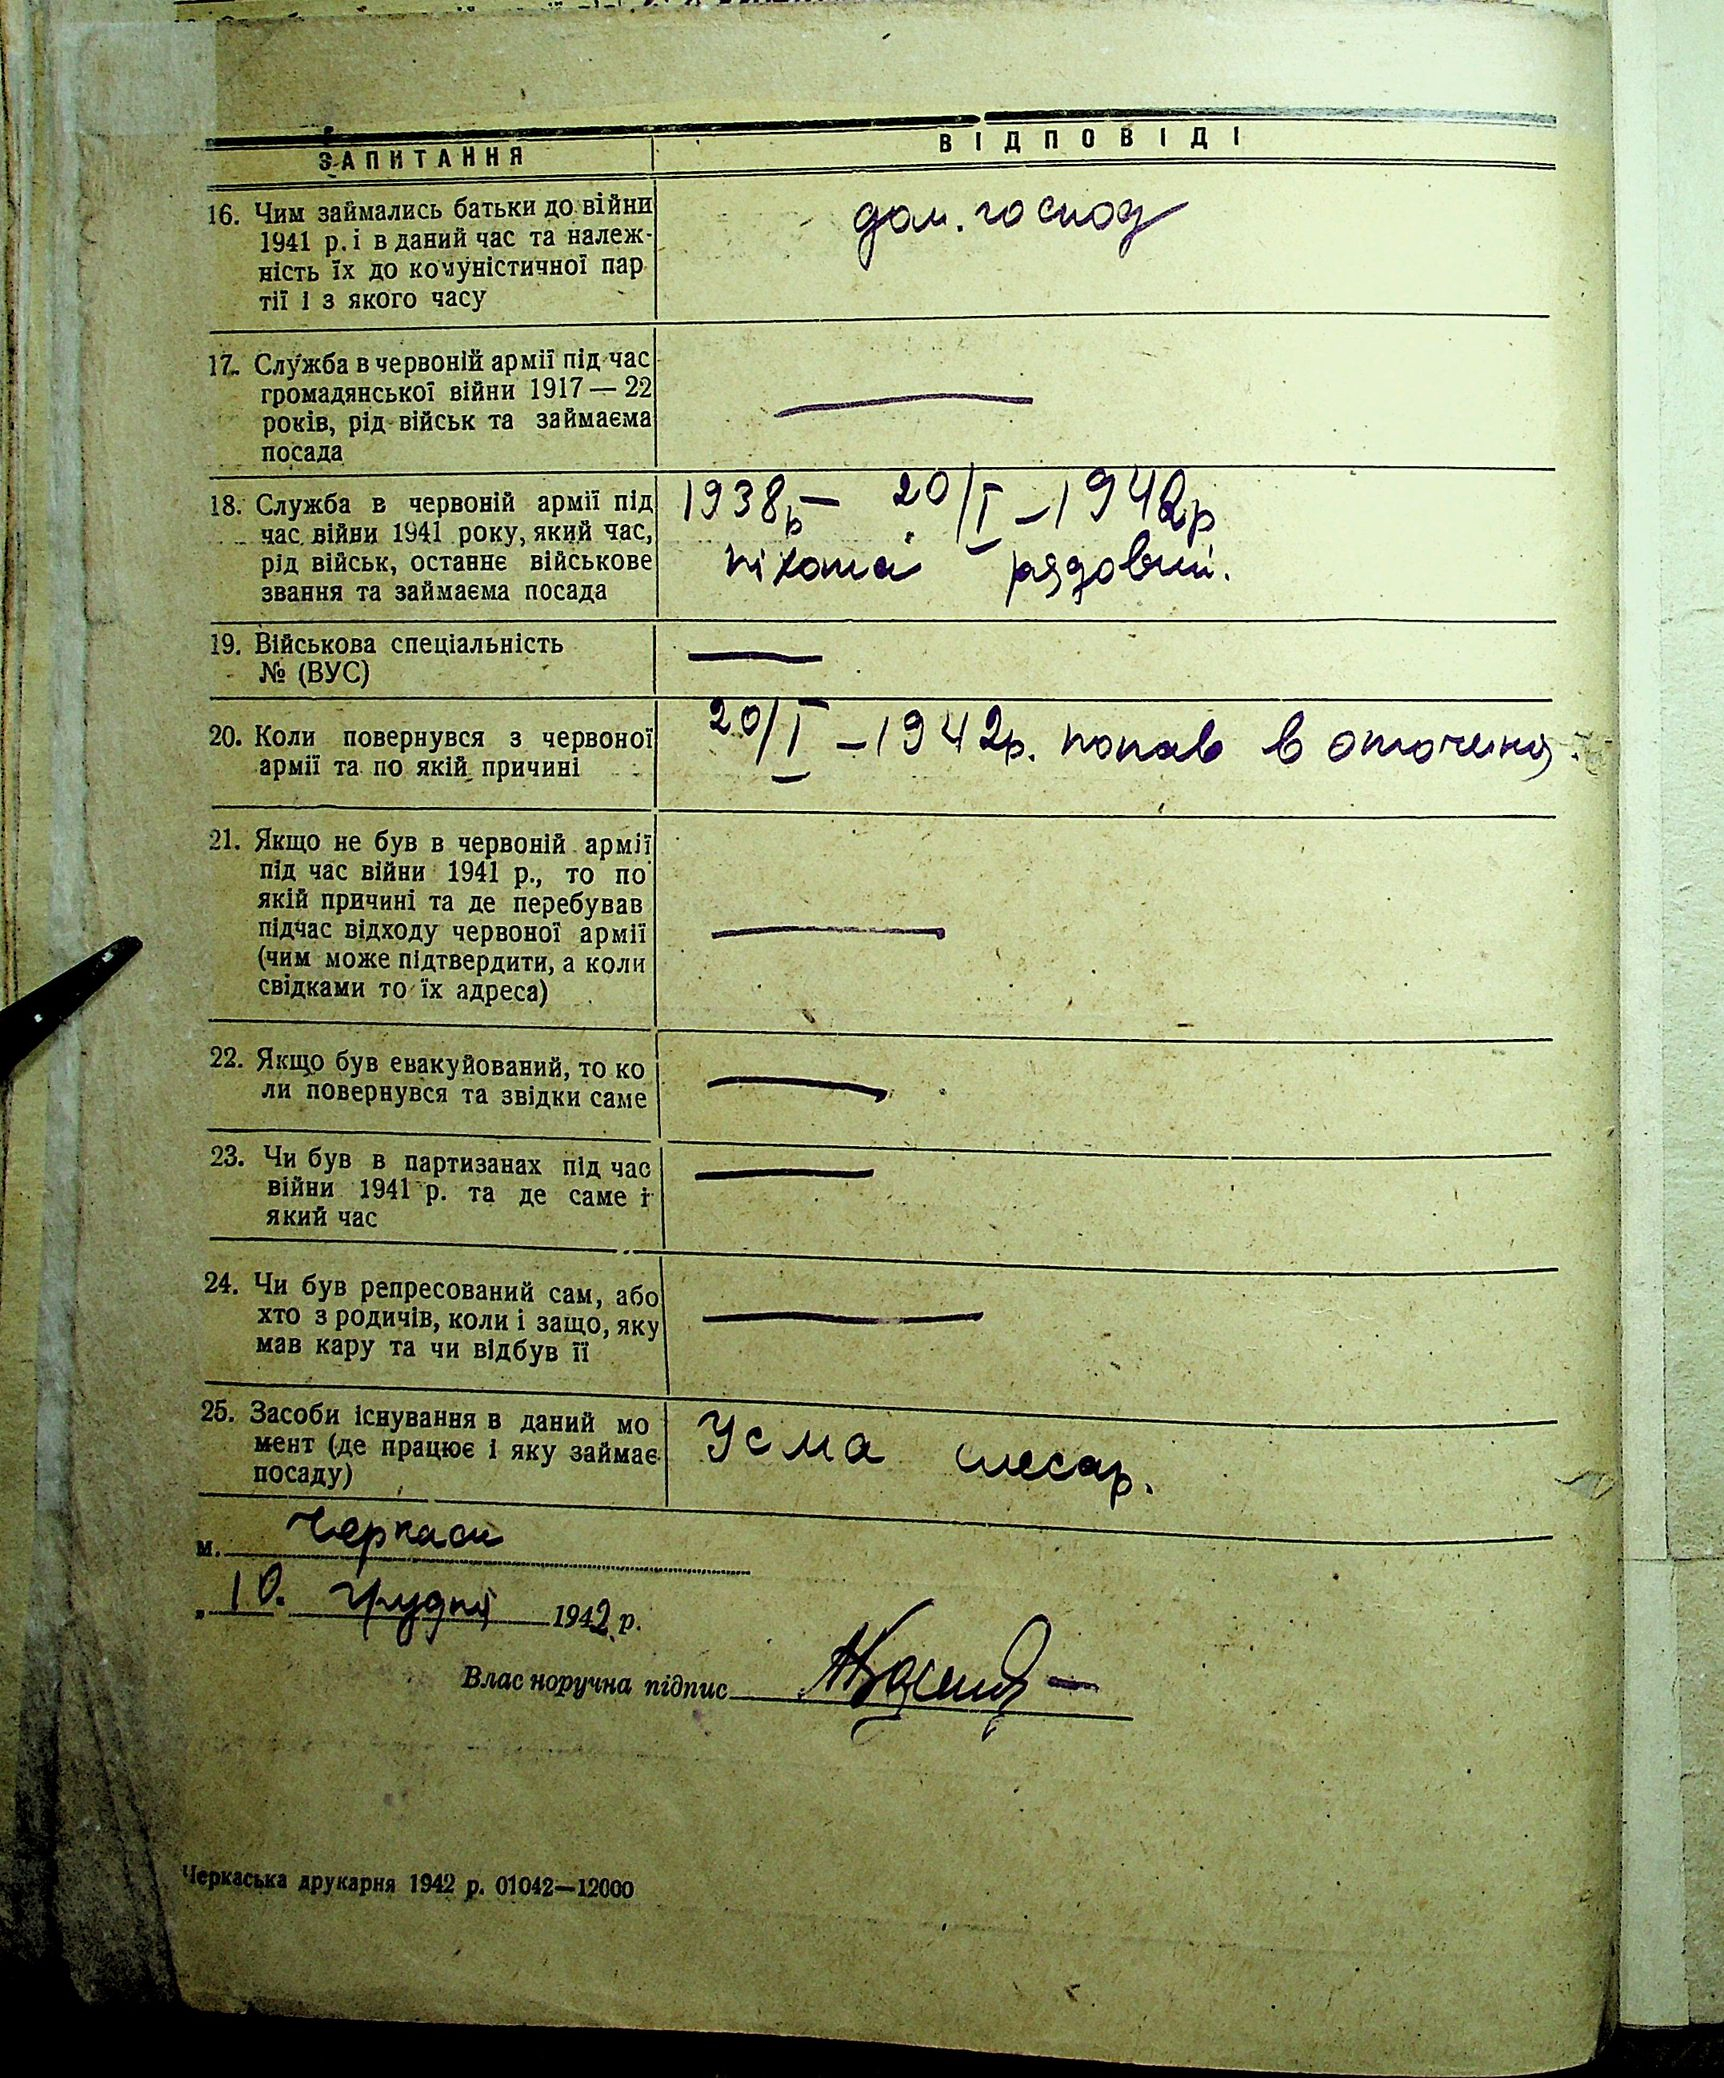 ЗАПИТАННЯ
ВІДПОВІДІ
16. Чим займались батьки до війни
1941 р. і в даний час та належ-
ність їх до комуністичної пар
тії і з якого часу
дом. господ
17. Служба в червоній армії під час
громадянської війни 1917 — 22
років, рід військ та займаєма
посада
18. Служба в червоній армії під
час війни 1941 року, який час,
рід військ, останнє військове
звання та займаєма посада
1938р — 20/I – 1942р
піхота рядовий.
19. Військова спеціальність
№ (ВУС)
20. Коли повернувся з червоної
армії та по якій причині
20/I – 1942р. попав в оточення.
21. Якщо не був в червоній армії
під час війни 1941 р., то по
якій причині та де перебував
підчас відходу червоної армії
(чим може підтвердити, а коли
свідками то їх адреса)
22. Якщо був евакуйований, то ко
ли повернувся та звідки саме
23. Чи був в партизанах під час
війни 1941 р. та де саме і
який час
24. Чи був репресований сам, або
хто з родичів, коли і защо, яку
мав кару та чи відбув її
25. Засоби існування в даний мо
мент (де працює і яку займає
посаду)
Усма слесар.
м. Черкаси
„ 10. грудня 1942 р.
Влас норучна підпис
Черкаська друкарня 1942 р. 01042—12000